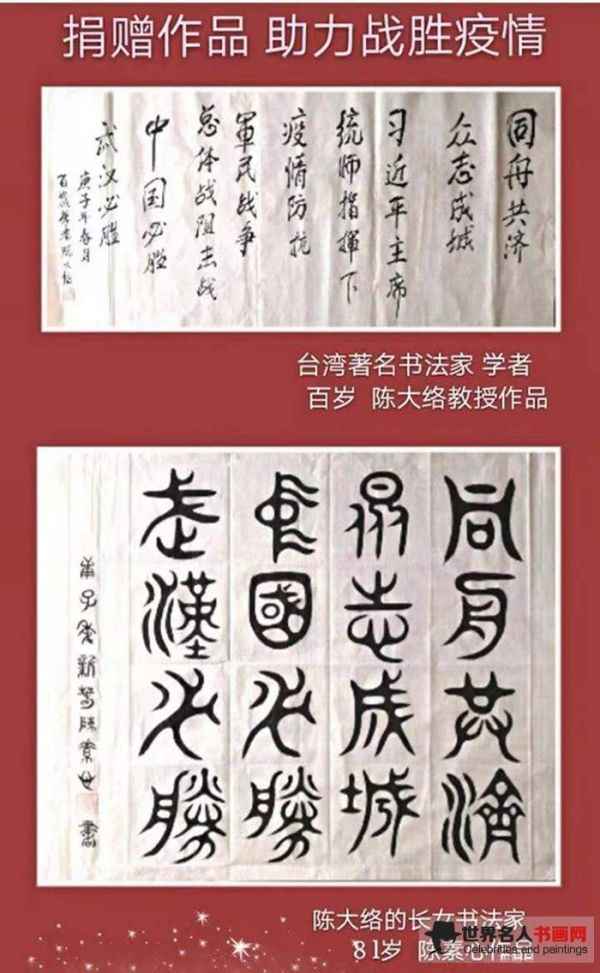 捐赠作品 助力战胜疫情
同舟共济
众志成城
习近平主席
统师指揮下
疫情防抗
軍民战争
总体战阻击战
中国必胜
武汉必胜
庚子年春月
台湾著名书法家 学者
百岁 陈大络教授作品
同舟共濟
眾志成城
中國必勝
武漢必勝
陈大络的长女书法家
81岁 陈素
作品
世界名人书画网
Celebrities and paintings